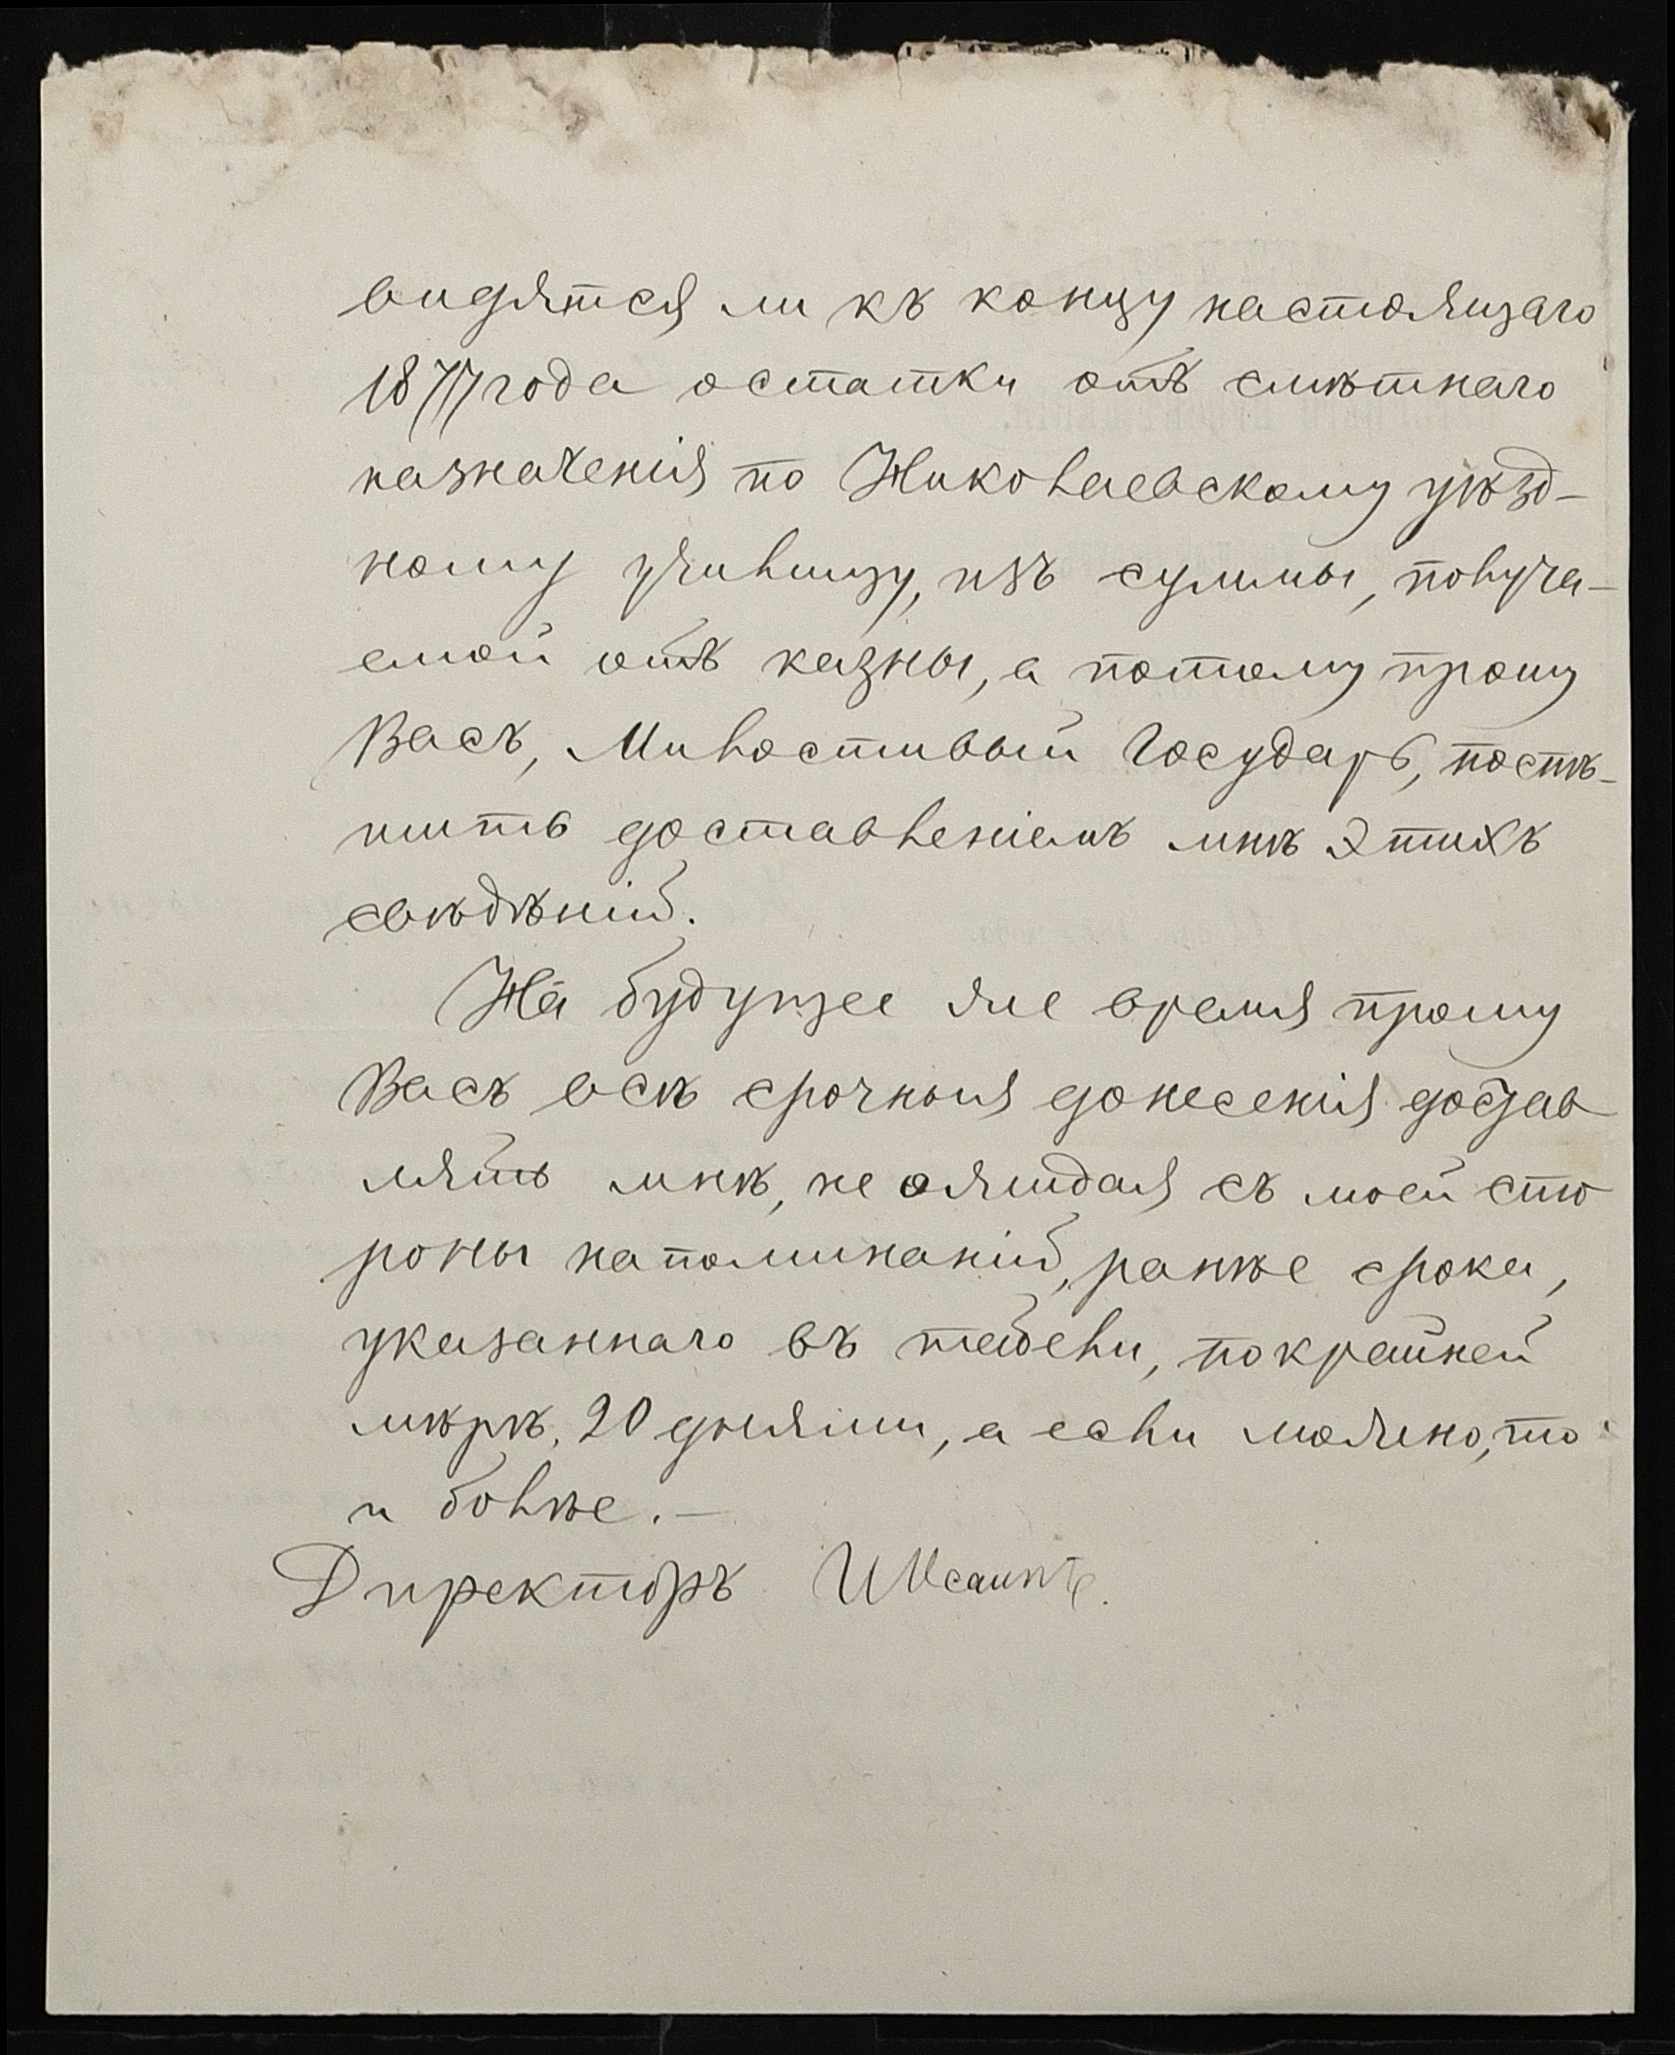 видятся ли къ концу настоящаго
1877 года остатки отъ смѣтнаго
назначенія по Николаевскому уѣзд-
ному училищу, изъ суммы, получа-
емой отъ казны, а потому прошу
Васъ, Милостивый Государь, поспѣ-
шить доставленіемъ мнѣ этихъ
свѣдѣній.
На будущее же время прошу
Васъ всѣ срочныя донесенія достав
лять мнѣ, не ожидая съ моей сто
роны напоминаній, ранѣе срока,
указаннаго въ табели, по крайней
мѣрѣ, 20 днями, а если можно, то
и болѣе.—
Директоръ